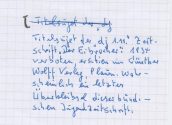 Titelsigel der dj
Titelsigel der „dj 1.11“ Zeit-
schrift „Der Eisbrecher“ 1934
verboten, erschien im Günther
Wolff Verlag, Plauen. Wahr-
scheinlich ein letztes
Überbleibsel dieser bündi-
schen Jugendzeitschrift.